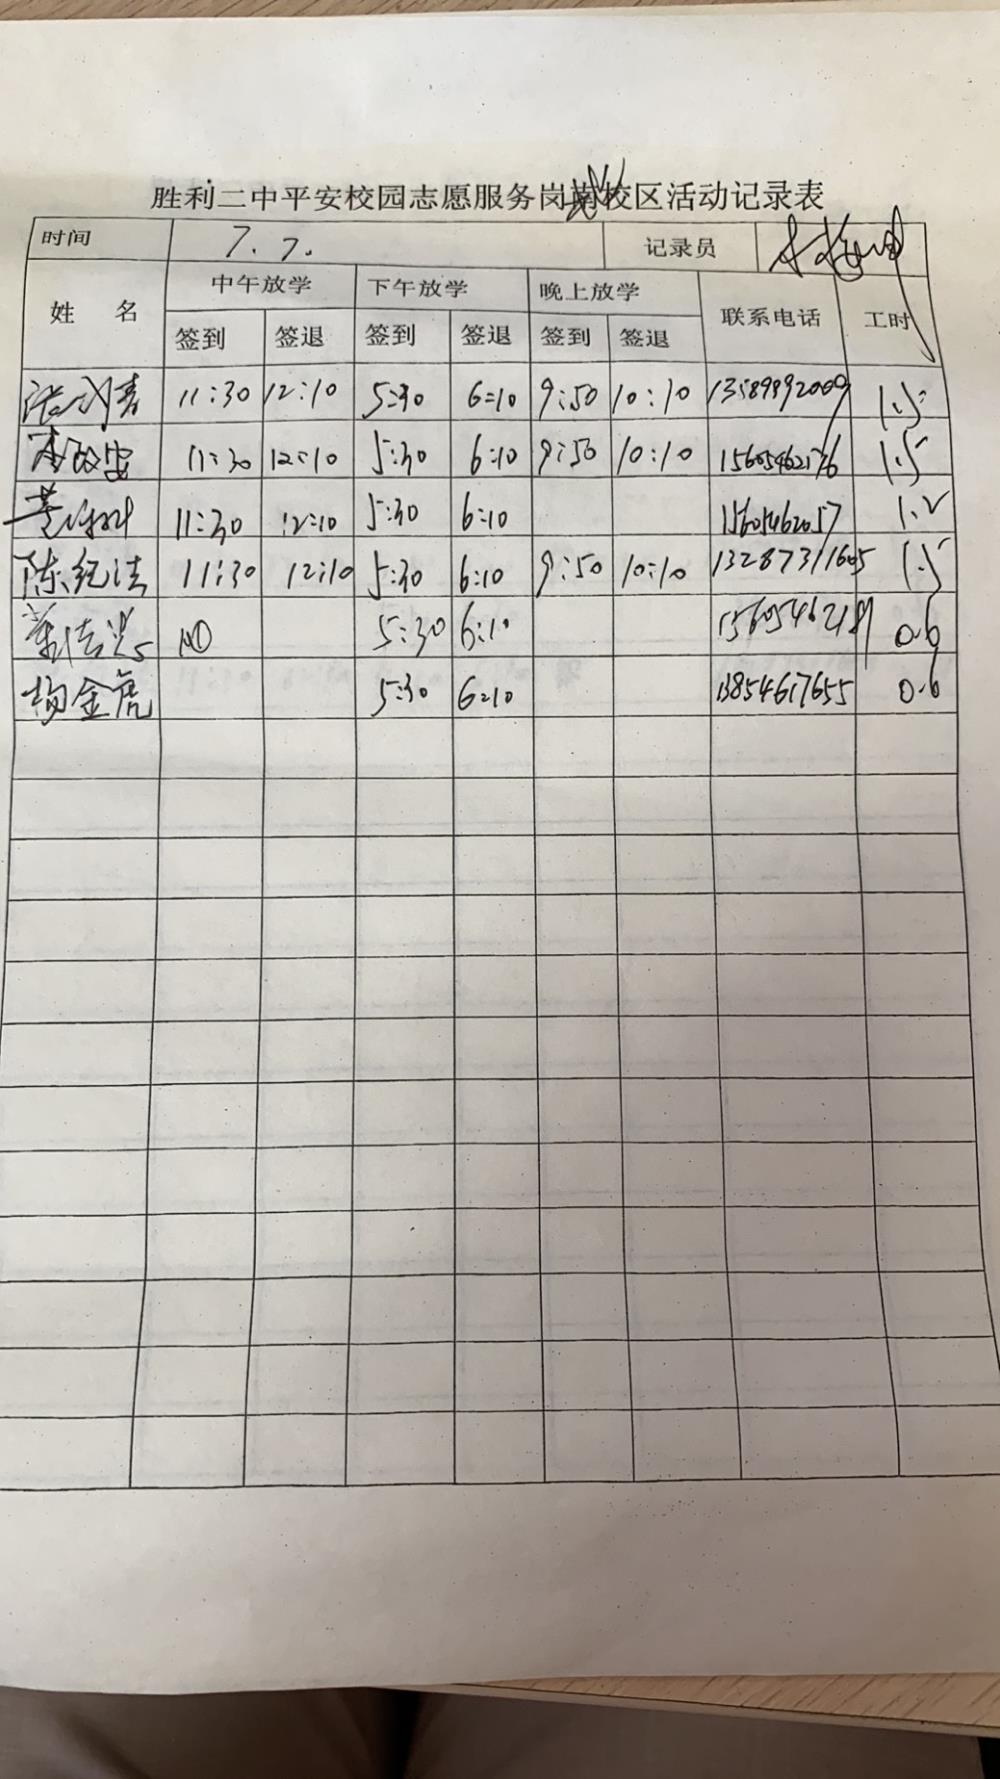 胜利二中平安校园志愿服务岗校区活动记录表
时间 7.7. 记录员
姓 名 中午放学 下午放学 晚上放学 联系电话 工时
签到 签退 签到 签退 签到 签退
11:30 12:10 5:30 6:10 9:50 10:10 13589892009 1.5
11:30 12:10 5:30 6:10 9:50 10:10 1.5
11:30 12:10 5:30 6:10 15605462057 1.2
陈纪法 11:30 12:10 5:30 6:10 9:50 10:10 13287311605 1.5
5:30 6:10 0.6
杨金虎 5:30 6:10 13854617655 0.6